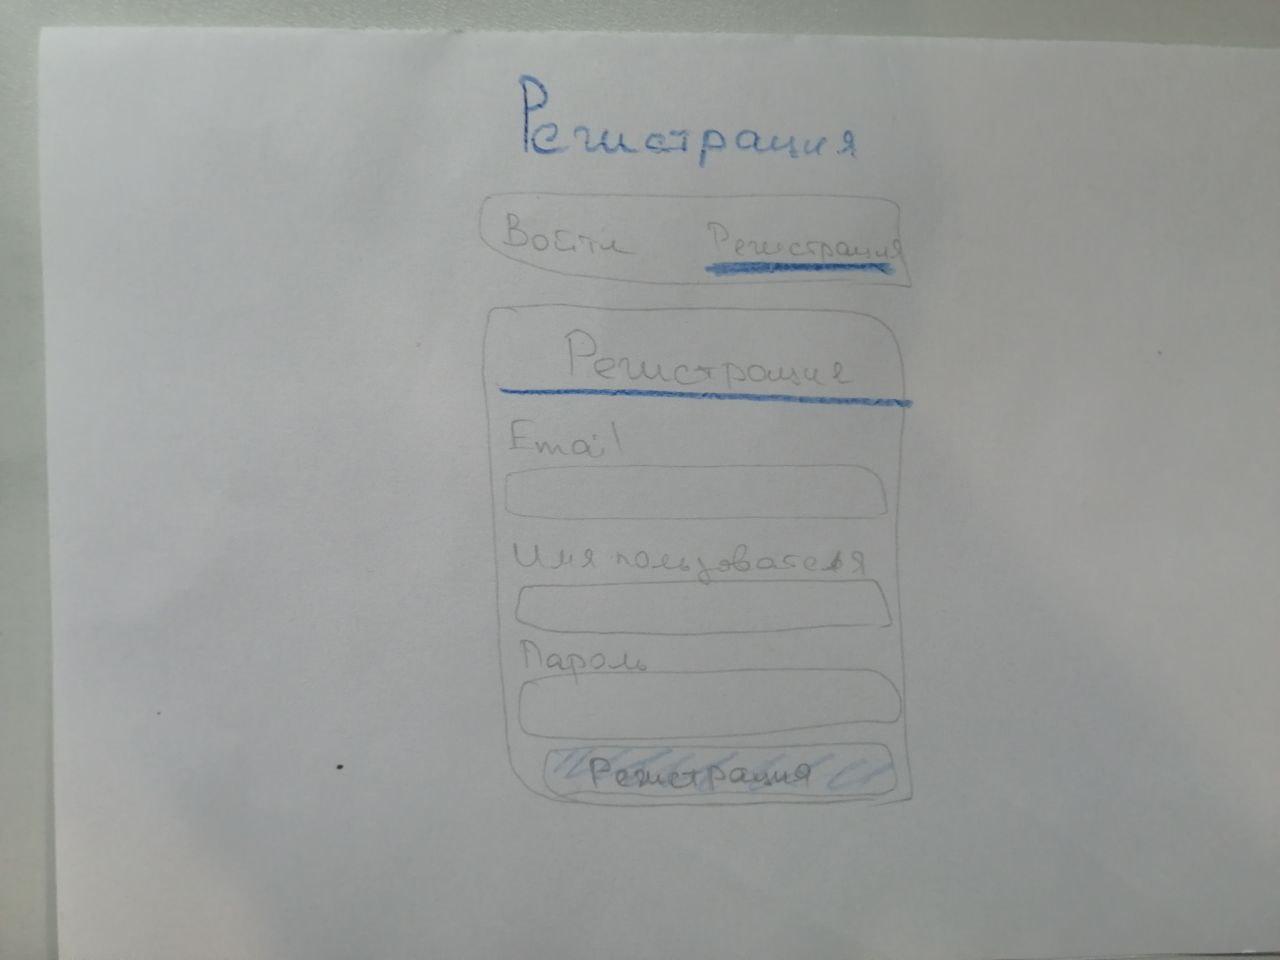 Регистрация
Войти Регистрация
Регистрация
Email
Имя пользователя
Пароль
Регистрация